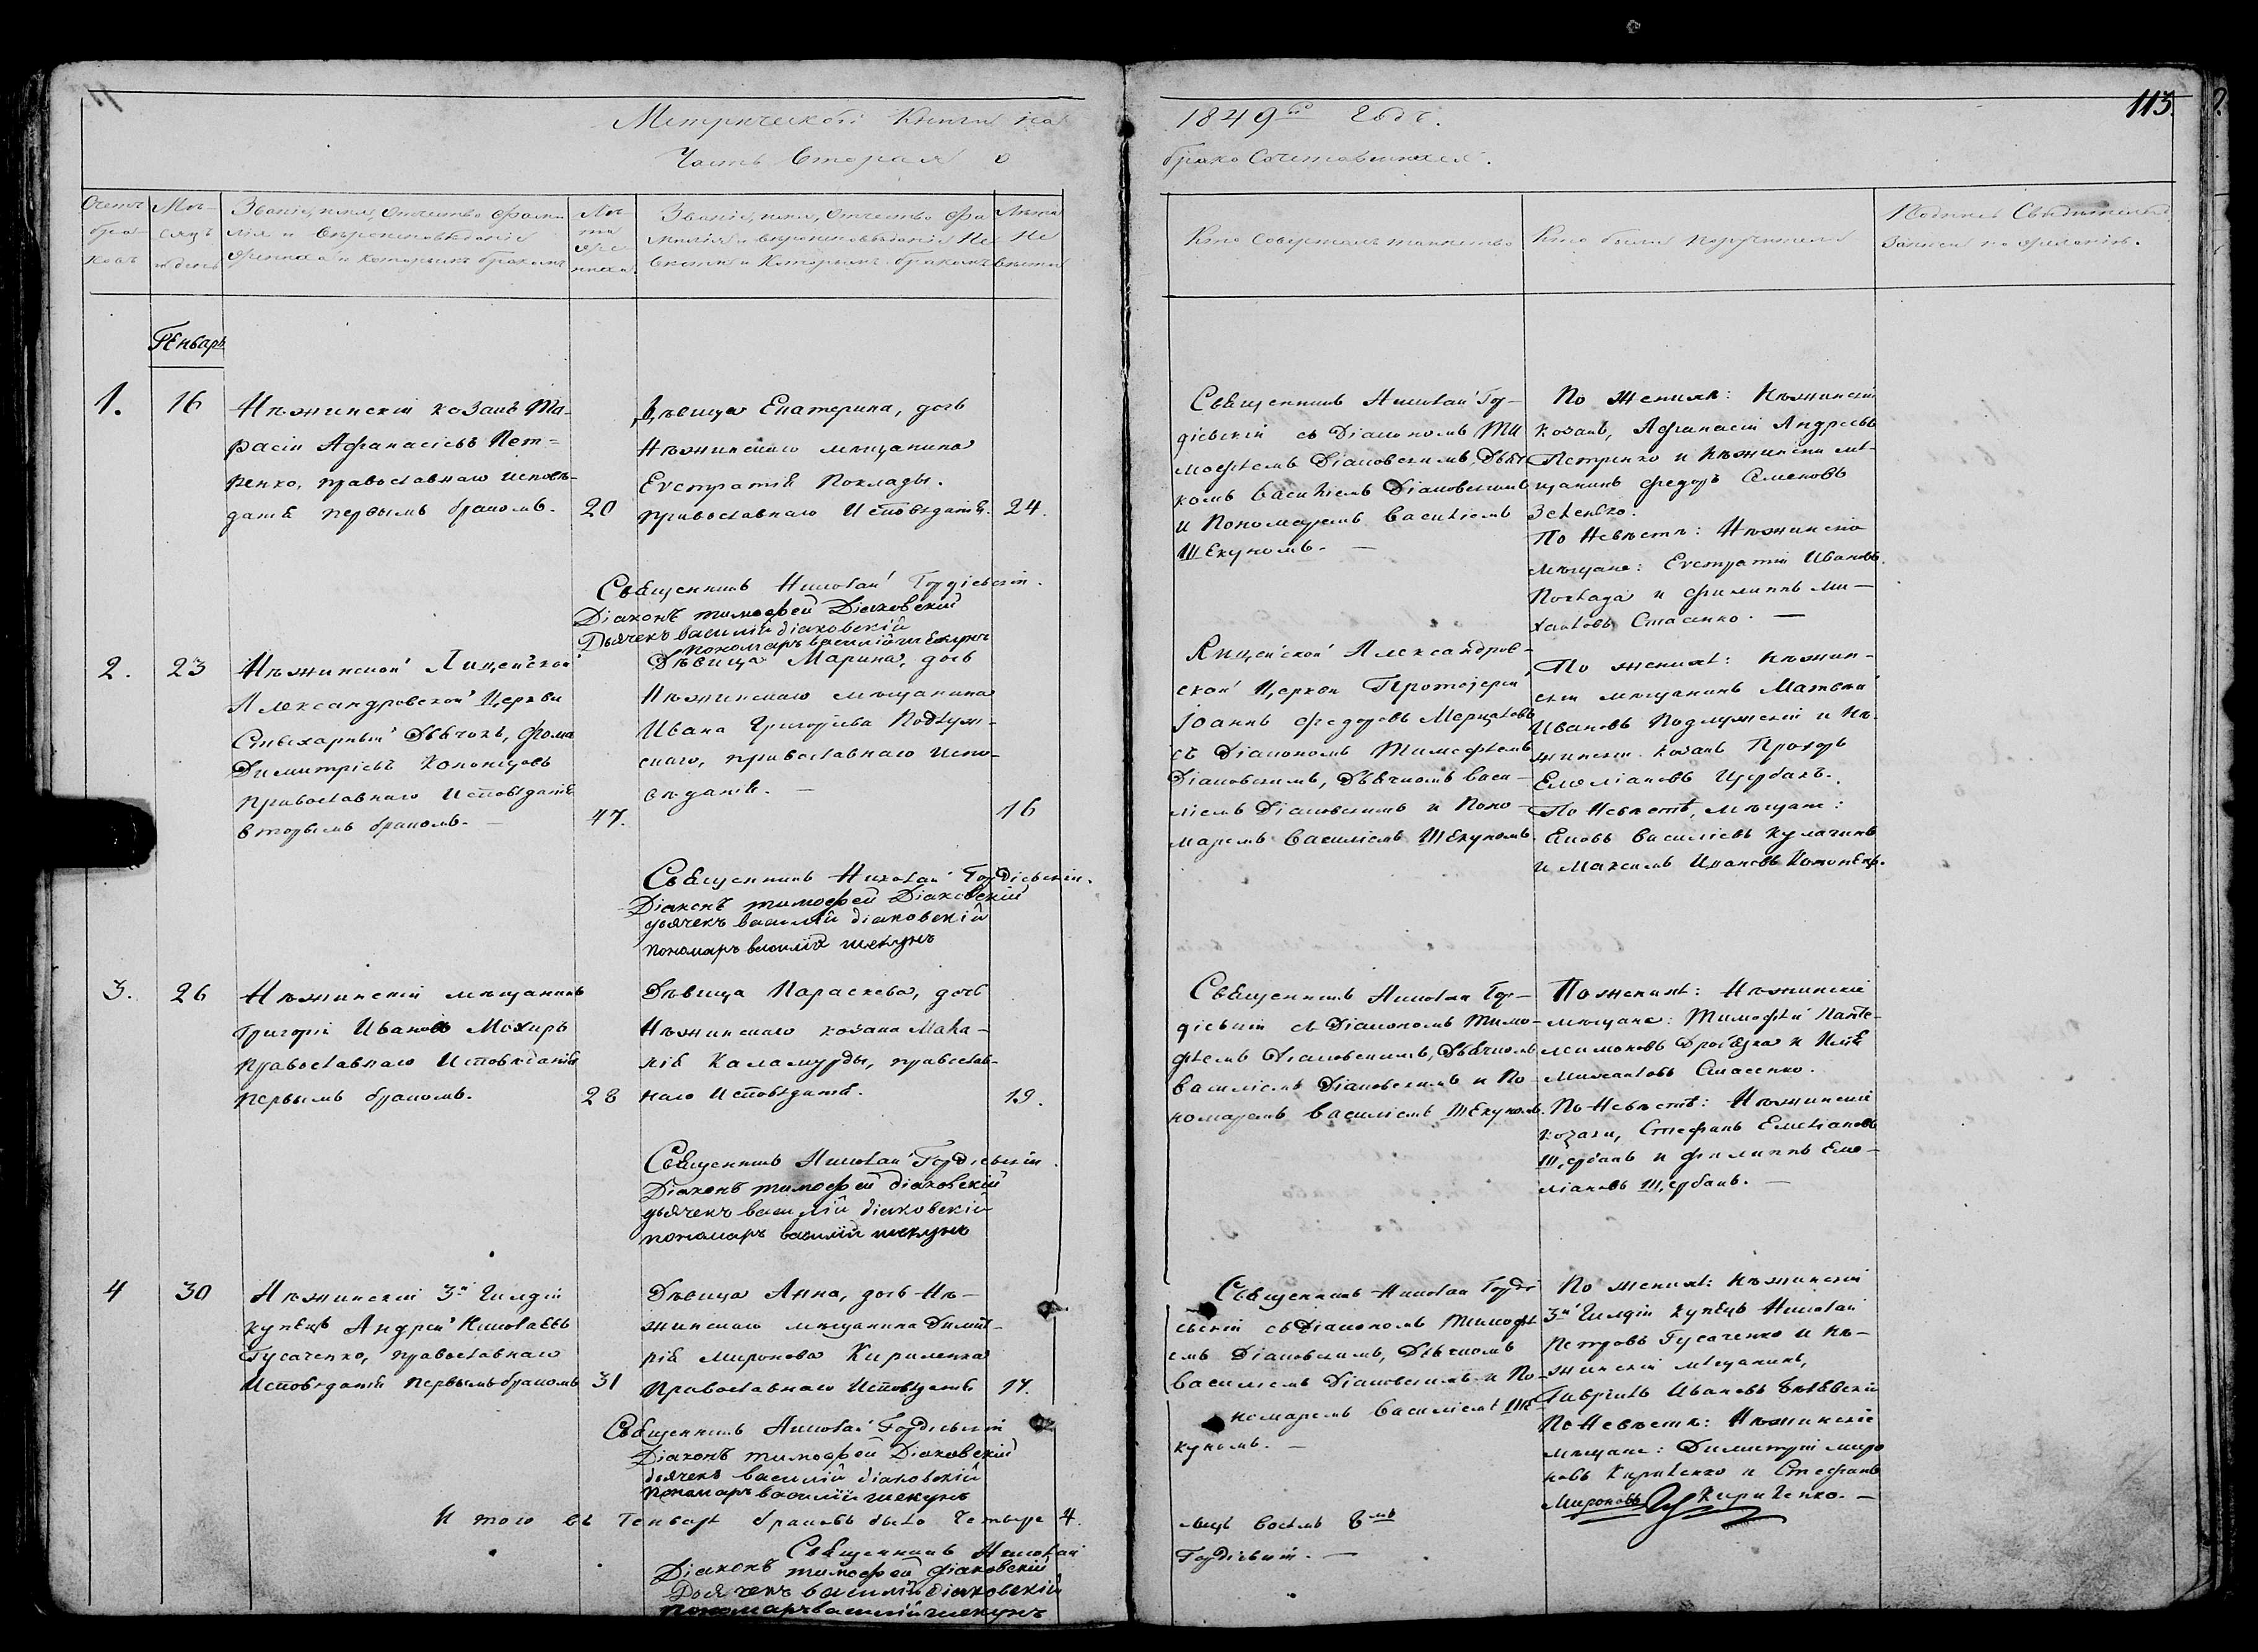 113.
Метрической Книги на 1849й Годъ.
Часть Вторая о бракосочетавшихся.
Счетъ бра-ковъ
Мѣ-сяцъ и день
Званіе, имя, отчество фами-
лія и вѣроисповѣданіе
жениха и которымъ бракомъ
Лѣ-та же-ниха
Званіе, имя, отчество фа-
милія и вѣроисповѣданіе Не-
вѣсты и которымъ бракомъ
Лѣта Не-вѣсты
Кто совершалъ таинство
Кто были поручители
Подпись Свидѣтелей
записи по желанію.
Генварь
1.
16
Нѣжинскій козакъ Та-
расій Афанасіевъ Пет-
ренко, православнаго исповѣ-
данія первымъ бракомъ.
20
Дѣвица Екатерина, дочь
Нѣжинскаго мѣщанина
Евстратія Поклады.
православнаго Исповѣданія.
24.
Священникъ Николай Гор-
діевскій съ Діакономъ Ти-
мофѣемъ Діаковскимъ, Дьяч-
комъ Василіемъ Діаковскимъ
и Пономаремъ Василіемъ
Шекуномъ. —
По Женихѣ: Нѣжинскій
козакъ, Афанасій Андреевъ
Петренко и Нѣжинскій мѣ-
щанинъ Федоръ Семеновъ
По Невѣстѣ: Нѣжинскіе
мѣщане: Евстратій Ивановъ
Поклада и Филиппъ Ми-
хайловъ Стасенко. —
Священникъ Николай Гордіевскій.
Діаконъ тимофей Діаковскій
Дьячекъ василій діаковскій
пономаръ василій шекунъ
2.
23
Нѣжинской Лицейской
Александровской Церкви
Стихарный Дьячокъ, Фома
Димитріевъ
Православнаго Исповѣданія
вторымъ бракомъ. —
47.
Дѣвица Марина, дочь
Нѣжинскаго мѣщанина
Ивана Григорьева Подлуж-
скаго, православнаго испо-
вѣданія. —
16
Лицейской Александров-
ской Церкви Протоіерей
Іоаннъ Федоровъ Мерцаловъ
съ Діакономъ Тимофѣемъ
Діаковскимъ, Дьячкомъ Васи-
ліемъ Діаковскимъ и Поно-
маремъ Василіемъ Шекуномъ.
По женихѣ: Нѣжин-
скій мѣщанинъ Матвей
Ивановъ Подлужскій и Нѣ-
жинскій козакъ Прохоръ
Емеліановъ Щербакъ.
По Невѣстѣ, мѣщане:
Яковъ Василіевъ Кулагинъ
и Максимъ Ивановъ
Священникъ Николай Гордіевскій.
Діаконъ тимофей Діаковскій
дьячекъ василій діаковскій
пономаръ василій шекунъ
3.
26
Нѣжинскій мѣщанинъ
Григорій Ивановъ Мохиръ
Православнаго Исповѣданія
первымъ бракомъ.
28
Дѣвица Параскева, дочь
Нѣжинскаго козака Мака-
рія Каламурды, православ-
наго Исповѣданія.
19.
Священникъ Николай Гор-
діевскій съ Діакономъ Тимо-
фѣемъ Діаковскимъ, Дьячкомъ
Василіемъ Діаковскимъ и По-
номаремъ Василіемъ Шекуномъ.
По женихѣ: Нѣжинскіе
мѣщане: Тимофѣй Панте-
леимоновъ и Илія
Михайловъ Стасенко.
По Невѣстѣ: Нѣжинскіе
козаки, Стефанъ Емеліановъ
Щербакъ и Филиппъ Еме-
ліановъ Щербакъ. —
Священникъ Николай Гордіевскій.
Діаконъ тимофей діаковскій
дьячекъ василій діаковскій
пономаръ василій шекунъ
4
30
Нѣжинскій 3й Гилдіи
купецъ Андрей Николаевъ
Гусаченко, православнаго
Исповѣданія первымъ бракомъ
31
Дѣвица Анна, дочь Нѣ-
жинскаго мѣщанина Димит-
рія Миронова Кириленка
Православнаго Исповѣданія
17.
Священникъ Николай Горді-
евскій съ Діакономъ Тимофѣ-
емъ Діаковскимъ, Дьячкомъ
Василіемъ Діаковскимъ и По-
номаремъ Василіемъ Ше-
куномъ. —
По женихѣ: Нѣжинскій
3й Гилдіи купецъ Николай
Петровъ Гусаченко и Нѣ-
жинскій мѣщанинъ,
Гавріилъ Ивановъ
По Невѣстѣ: Нѣжинскіе
мѣщане: Димитрій Миро-
новъ Кириленко и Стефанъ
Мироновъ Кириленко. —
Священникъ Николай Гордіевскій
Діаконъ тимофей Діаковскій
дьячекъ василій діаковскій
пономаръ василій шекунъ
И того въ Генварѣ браковъ было четыре 4. лицъ восемь 8мъ
Священникъ Николай Гордіевскій. —
Діаконъ тимофей діаковскій
Дьячекъ василій діаковскій
пономаръ василій шекунъ